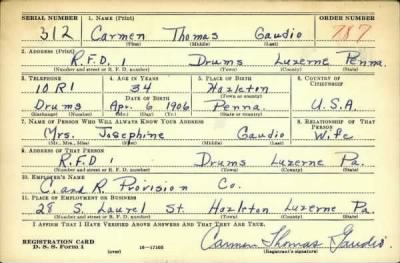 SERIAL NUMBER 1. NAME (Print) ORDER NUMBER
312 Carmen Thomas Gaudio 787
(First) (Middle) (Last)
2. ADDRESS (Print)
R.F.D. 1 Drums Luzerne Penna.
(Number and street or R. F. D. number) (Town) (County) (State)
3. TELEPHONE 4. AGE IN YEARS 5. PLACE OF BIRTH 6. COUNTRY OF CITIZENSHIP
10 R 1 34 Hazleton
DATE OF BIRTH (Town or county)
Drums Apr. 6 1906 Penna. U.S.A.
(Exchange) (Number) (Mo.) (Day) (Yr.) (State or country)
7. NAME OF PERSON WHO WILL ALWAYS KNOW YOUR ADDRESS 8. RELATIONSHIP OF THAT PERSON
Mrs. Josephine Gaudio Wife
(Mr., Mrs., Miss) (First) (Middle) (Last)
9. ADDRESS OF THAT PERSON
R.F.D. 1 Drums Luzerne Pa.
(Number and street or R. F. D. number) (Town) (County) (State)
10. EMPLOYER'S NAME
C. and R. Provision Co.
11. PLACE OF EMPLOYMENT OR BUSINESS
28 S. Laurel St. Hazleton Luzerne Pa.
(Number and street or R. F. D. number) (Town) (County) (State)
I AFFIRM THAT I HAVE VERIFIED ABOVE ANSWERS AND THAT THEY ARE TRUE.
REGISTRATION CARD
D. S. S. Form 1 (over) 16—17105 Carmen Thomas Gaudio
(Registrant's signature)